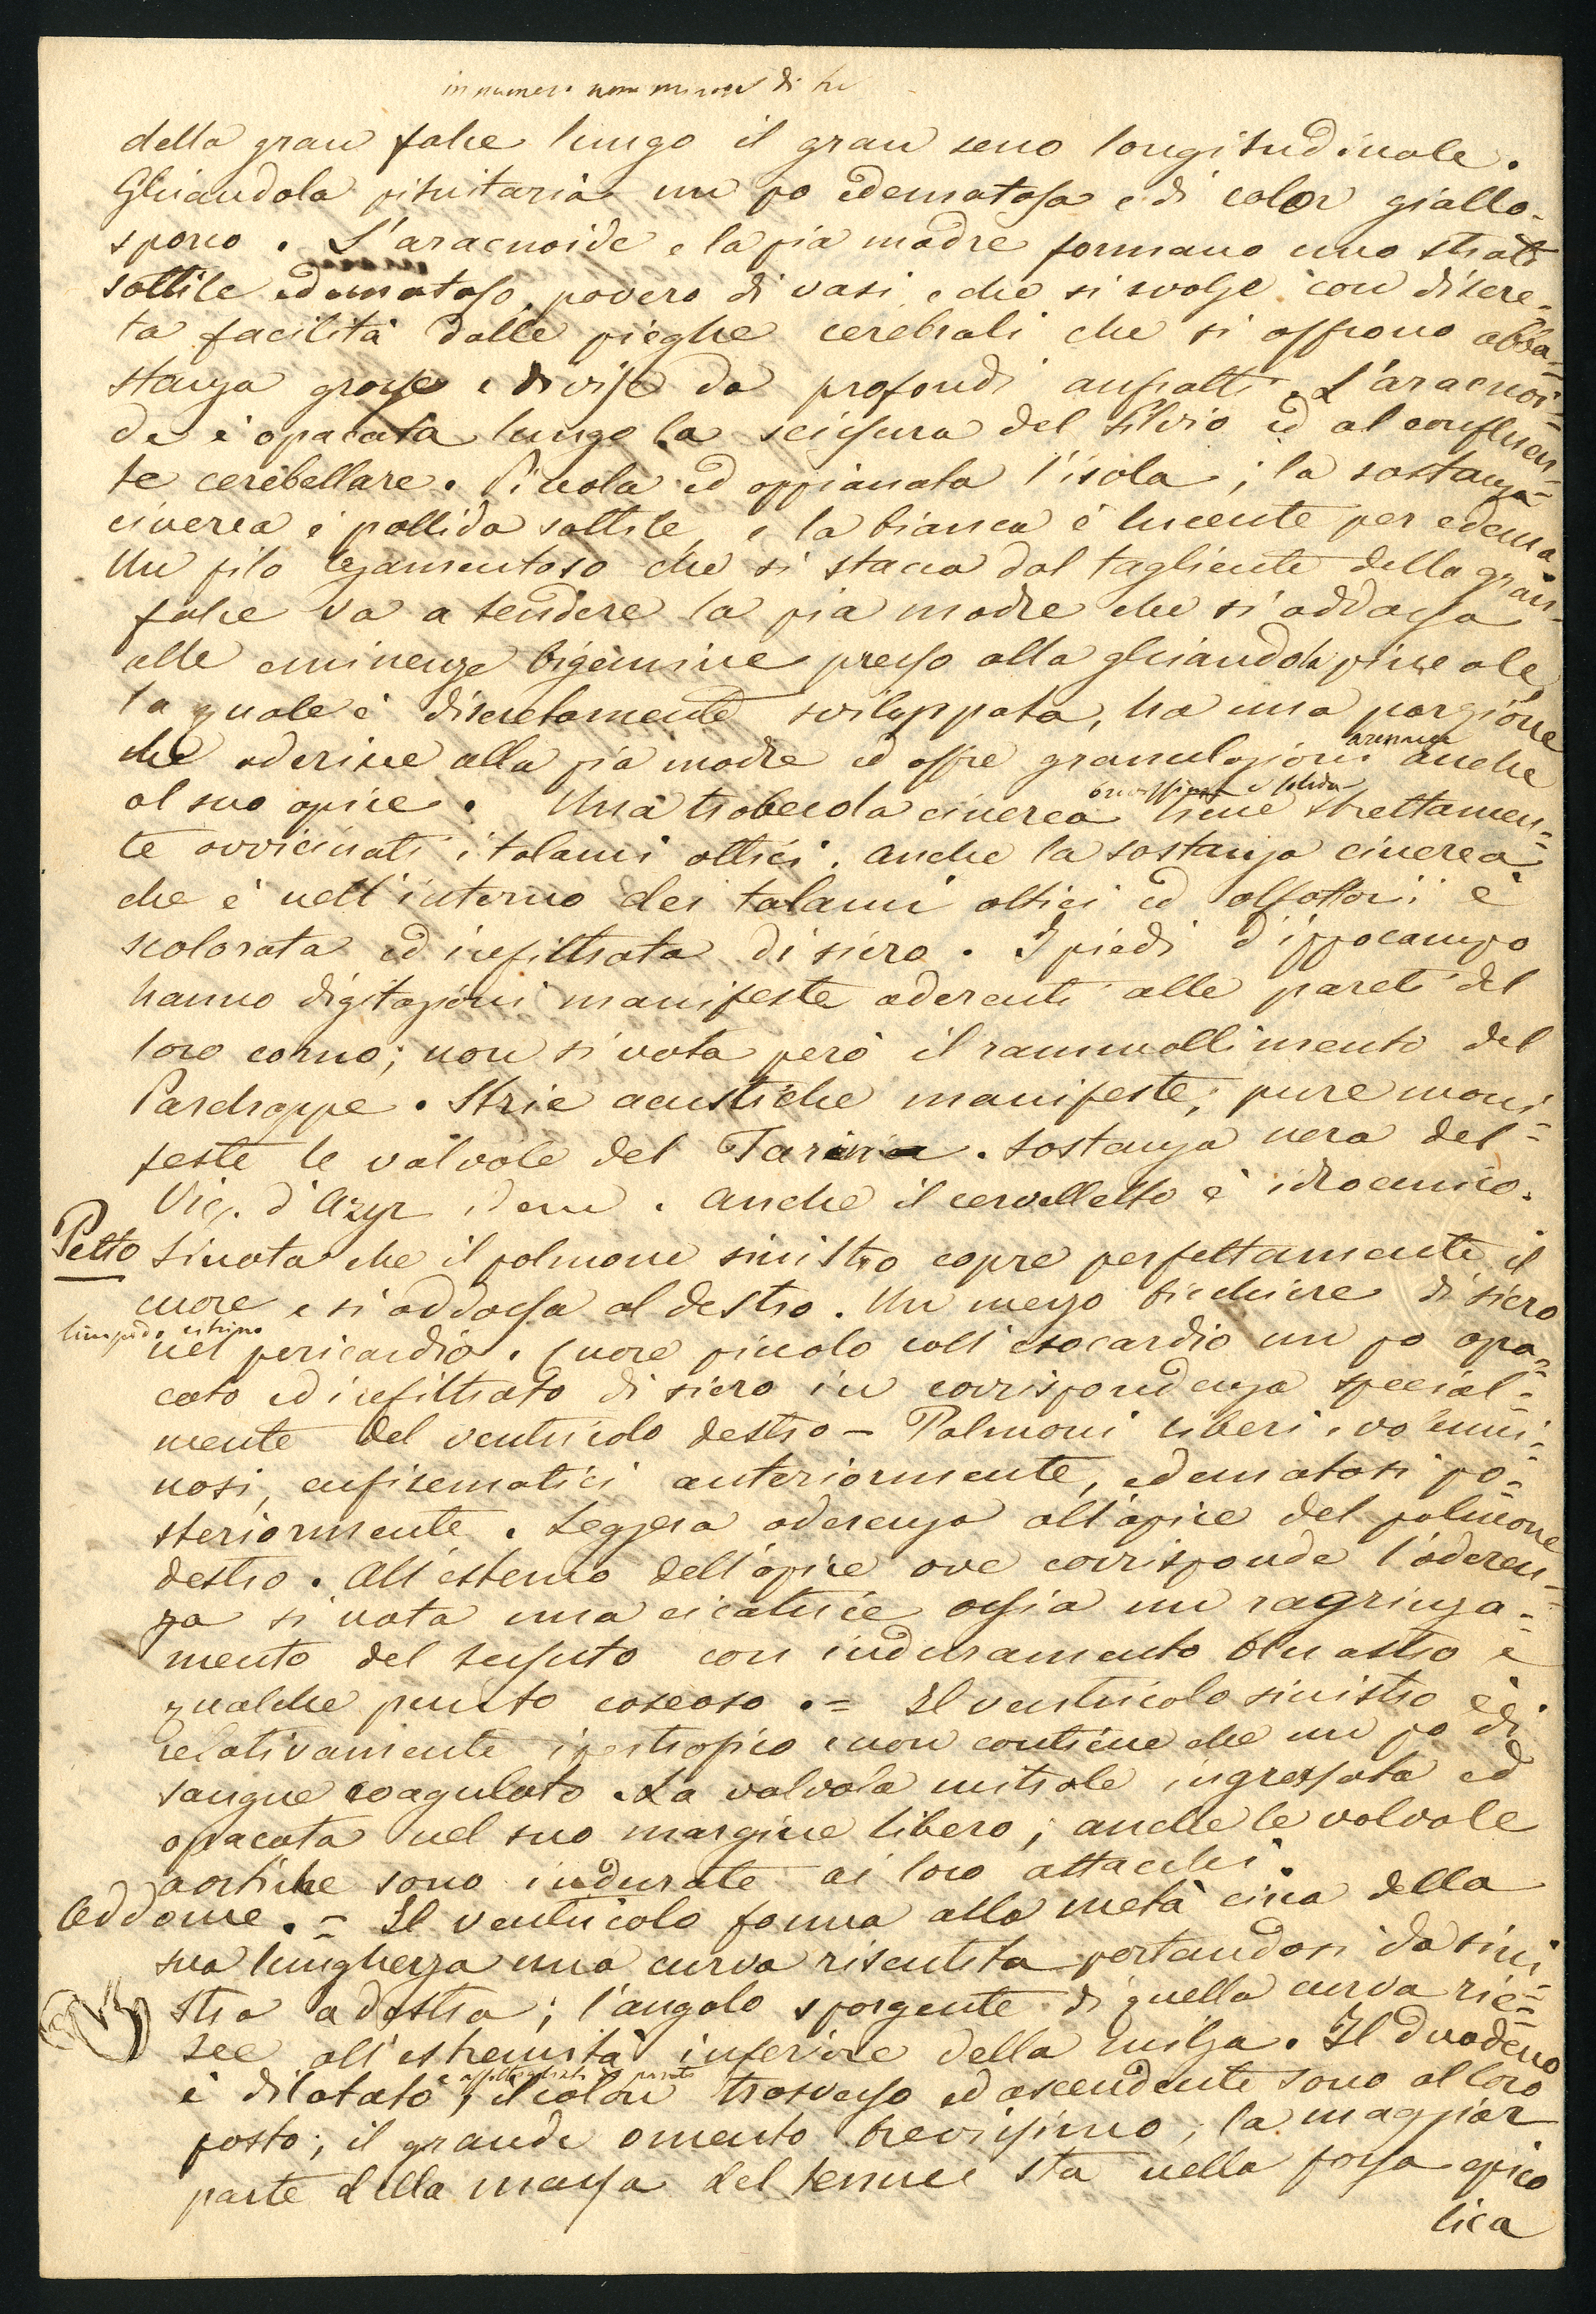 in numero non minore di tre
della gran falce lungo il gran seno longitudinale.
Ghiandola pituitaria un po edematosa e di color giallo-
sporco. L'aracnoide e la pia madre formano uno strato
sottile edematoso, povero di vasi, e che si svolge con discre-
ta facilità dalle pieghe cerebrali che si offrono abba-
stanza grosse e divise da profondi anfratti. L'aracnoi-
de è opacata lungo la scissura del Silvio ed al confluen-
te cerebellare. Piccola ed appianata l'isola; la sostanza
cinerea è pallida sottile, e la bianca è lucente per edema
Un filo legamentoso che si stacca dal tagliente della gran
falce va a tendere la pia madre che si addossa
alle eminenze bigemine presso alla ghiandola pineale,
la quale è discretamente sviluppata, ha una porzione
che aderisce alla pia madre ed offre granulazioni anche
arenacee
al suo apice. Una trabecola cinerea tiene strettamen-
e solida
te avvicinati i talami ottici. Anche la sostanza cinerea
che è nell'interno dei talami ottici ed olfattori è
scolorata ed infiltrata di siero. I piedi d'ippocampo
hanno digitazioni manifeste aderenti alle pareti del
loro corno; non si nota però il rammollimento del
Parchappe. Strie acustiche manifeste; pure mani-
feste le valvole del Tarin. Sostanza nera del
Vicq. d'Azyr idem. Anche il cervelletto è idroemico.
Petto Si nota che il polmone sinistro copre perfettamente il
cuore e si addossa al destro. Un mezzo bicchiere di siero
limpido citrino
nel pericardio. Cuore piccolo coll'esocardio un po opa-
cato ed infiltrato di siero in corrispondenza special-
mente del ventricolo destro - Polmoni liberi, volumi-
nosi, enfisematici anteriormente, edematosi po-
steriormente. Leggera aderenza all'apice del polmone
destro. All'esterno dell'apice ove corrisponde l'aderen-
za si nota una cicatrice ossia un ragrinza-
mento del tessuto con induramento bluastro e
qualche punto caseoso. = Il ventricolo sinistro è
relativamente ipertrofico e non contiene che un po di
sangue coagulato. La valvola mitrale ingrossata ed
opacata nel suo margine libero; anche le valvole
aortiche sono indurate ai loro attacchi.
Addome. - Il ventricolo forma alla metà circa della
sua lunghezza una curva risentita portandosi da sini-
stra a destra; l'angolo sporgente di quella curva rie-
sce all'estremità inferiore della milza. Il duodeno
è dilatato, il colon trasverso ed ascendente sono al loro
posto; il grande omento brevissimo; la maggior
parte della massa del tenue sta nella fossa epico
lica